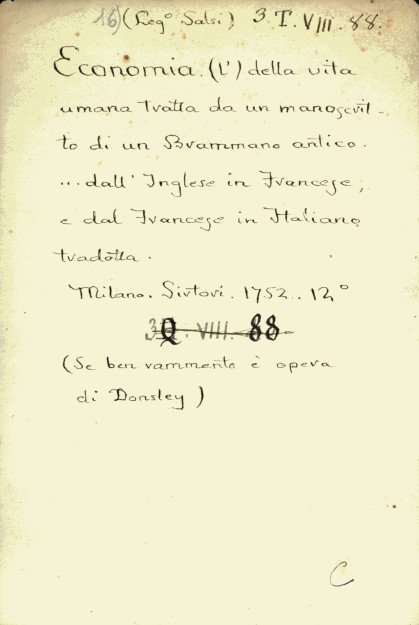 16) (Leg° Salsi) 3. T. VIII. 88.
Economia (L') della vita
umana tratta da un manoscrit-
to di un Brammano antico.
... dall' Inglese in Francese,
e dal Francese in Italiano
tradotta.
Milano. Sirtori. 1752. 12°
3 Q. VIII. 88
(Se ben rammento è opera
di Donsley)
C